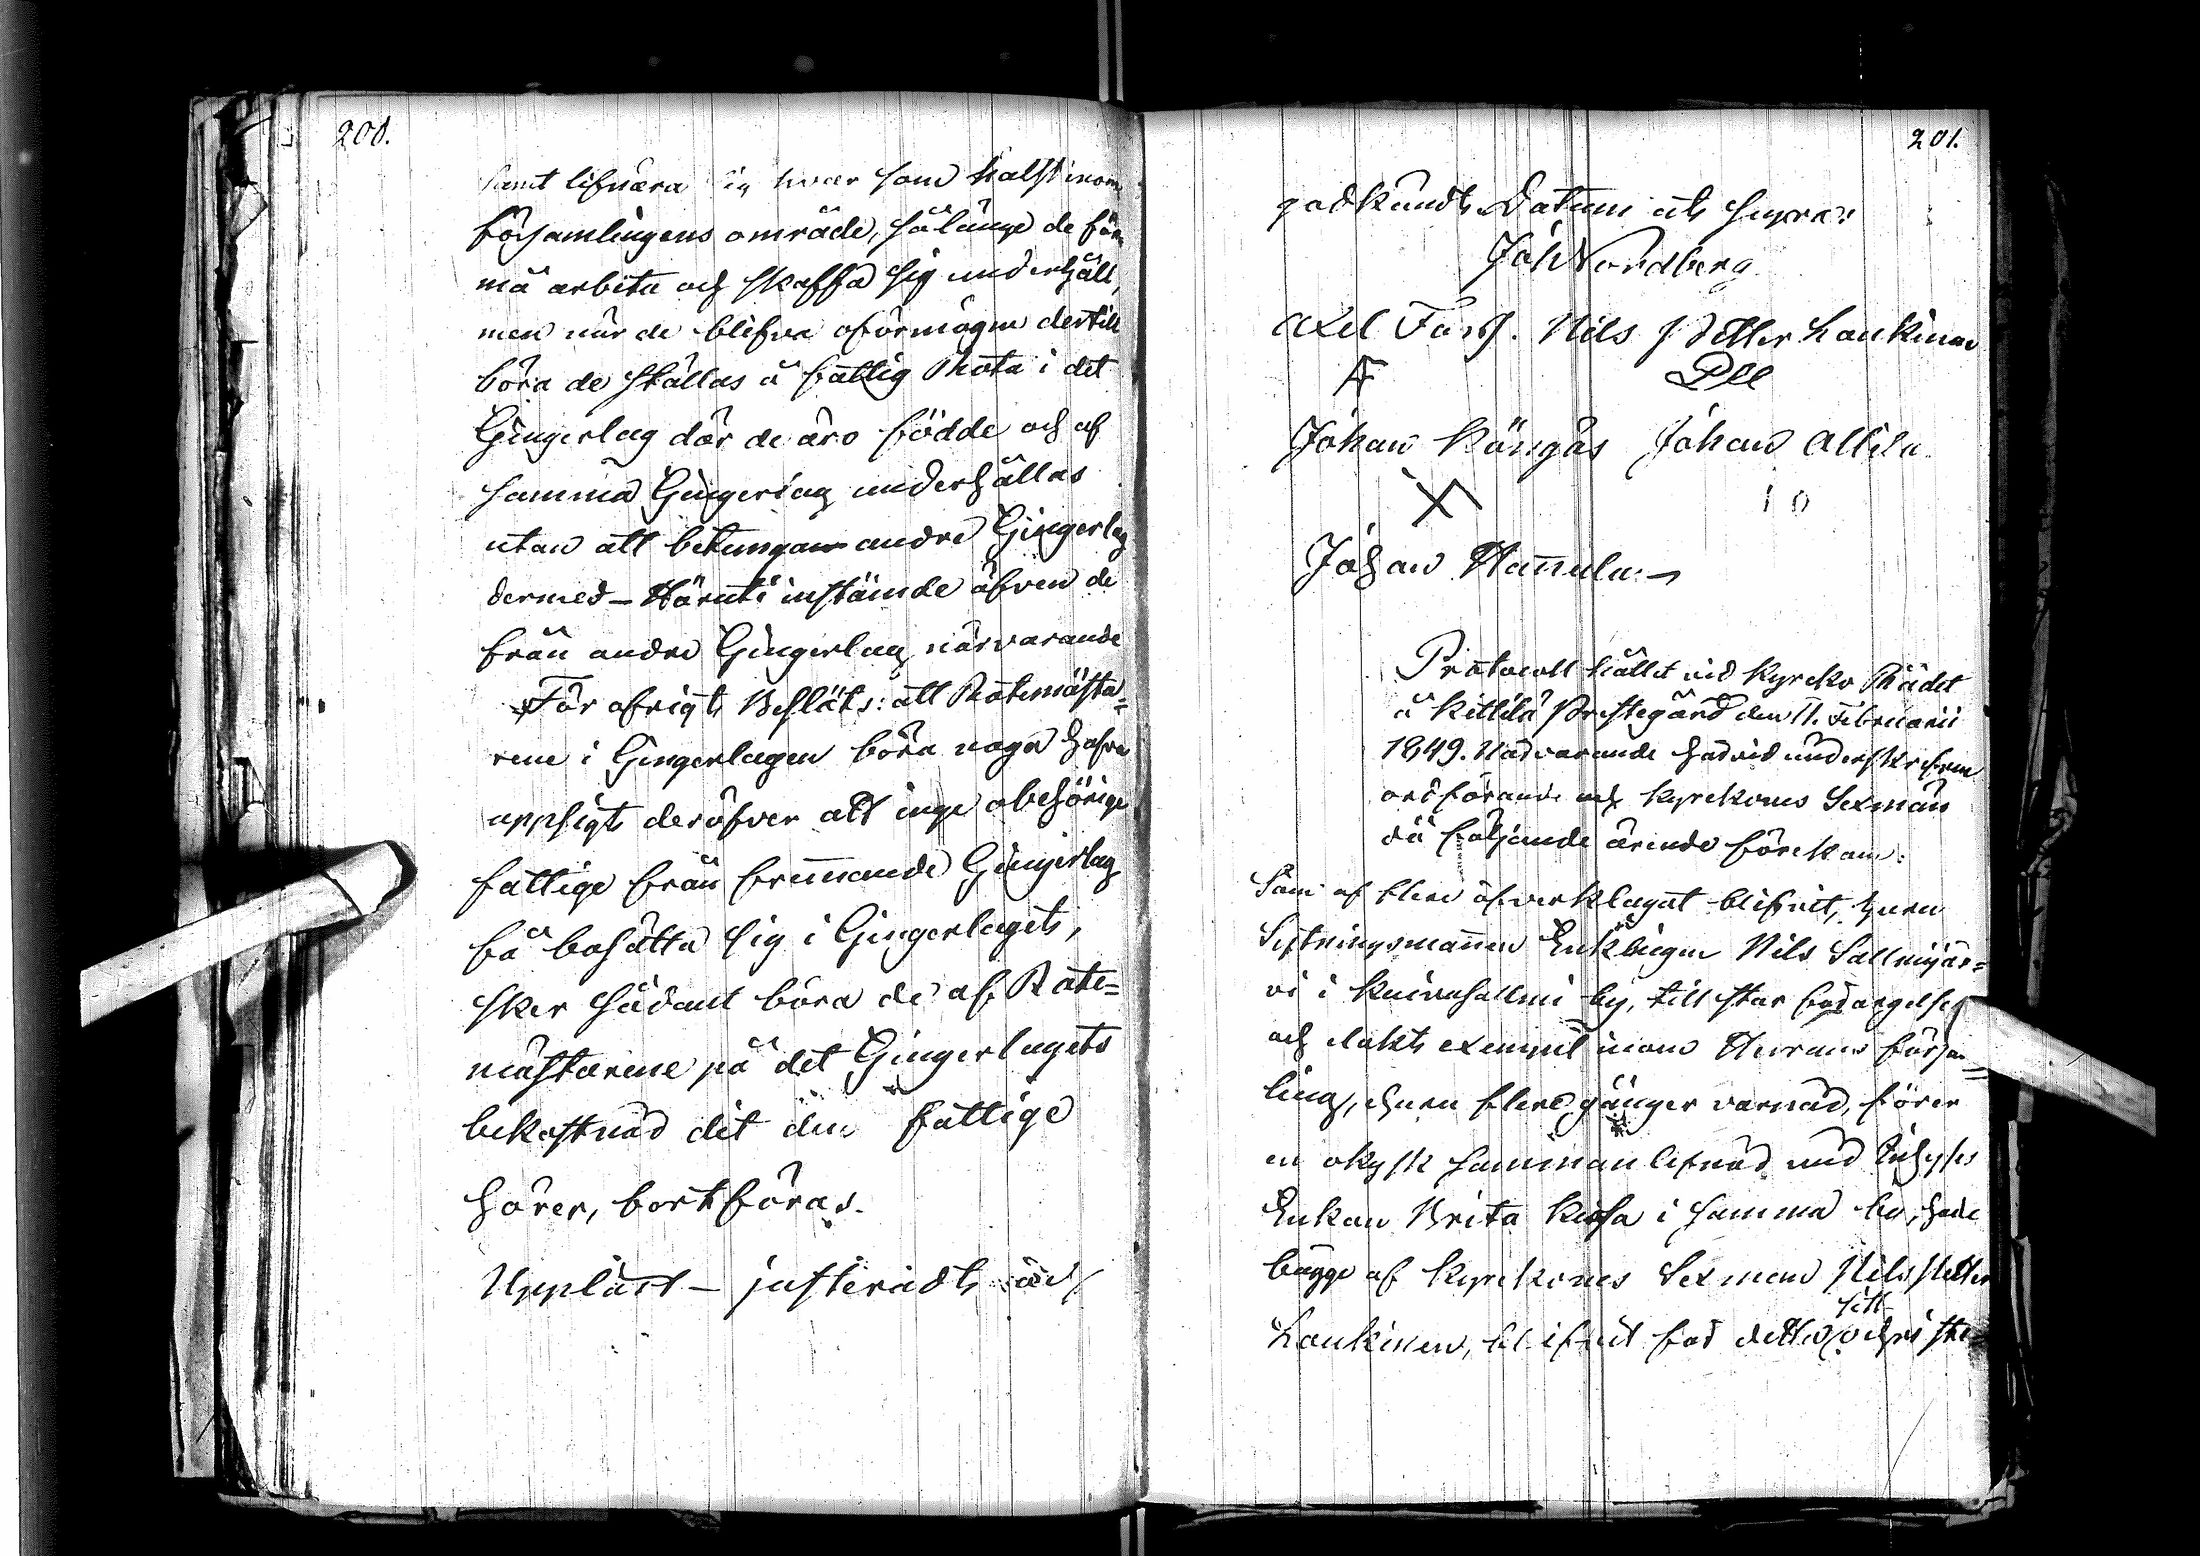 200.
samt lifnära sig hvar som hälst inom
församlingens område, så länge de för
må arbeta och skaffa sig underhåll,
men när de blifva oförmögne dertill
böra de ställas å fattig Rota i det
Gingerlag där de äro födde och af
samma Gingerlag underhållas
utan att betunga andre Gingerlag
dermed – Häruti instämde äfven de
från andre Gingerlag närvarande
För öfrigt Beslöts: att Rotemästa=
rene i Gingerlagen böra noga hafva
uppsigt deröfver att inge obehörige
fattige från främmande Gingerlag
få bosätta sig i Gingerlaget,
sker sådant böra de af Rote=
mästarene på det Gingerlagets
bekostnad dit den fattige
hörer, bortföras.
Uppläst – justeradt och
201.
godkändt. Datum ut supra:
Joh Nordberg
Axel Forss. Nils Petter Laukinen
AF PLL
Johan Köngäs Johan Alila
Johan Hannula. –
Protocoll hållet vid Kyrko Rådet
å Kittilä Prestegård den 11. Februarii
1849. Närvarande härvid underskrefven
ordförande och kyrkones Sexmän
då följande ärende förekom:
Som af flere öfverklagat blifvit, huru
Sytningsmannen Enklingen Nils Sallmijär=
vi i Kuivasallmi by, till stor förargelse
och elakt exempel inom Herrans försam=
ling, ehuru flere gånger varnad, förer
en okysk sammanlefnad med Inhyses
Enkan Brita Kiosa i samma by, hade
bägge af kyrkones Sexman Nils Petter
sitt
Laukinen, blifvit för detta ochriste=